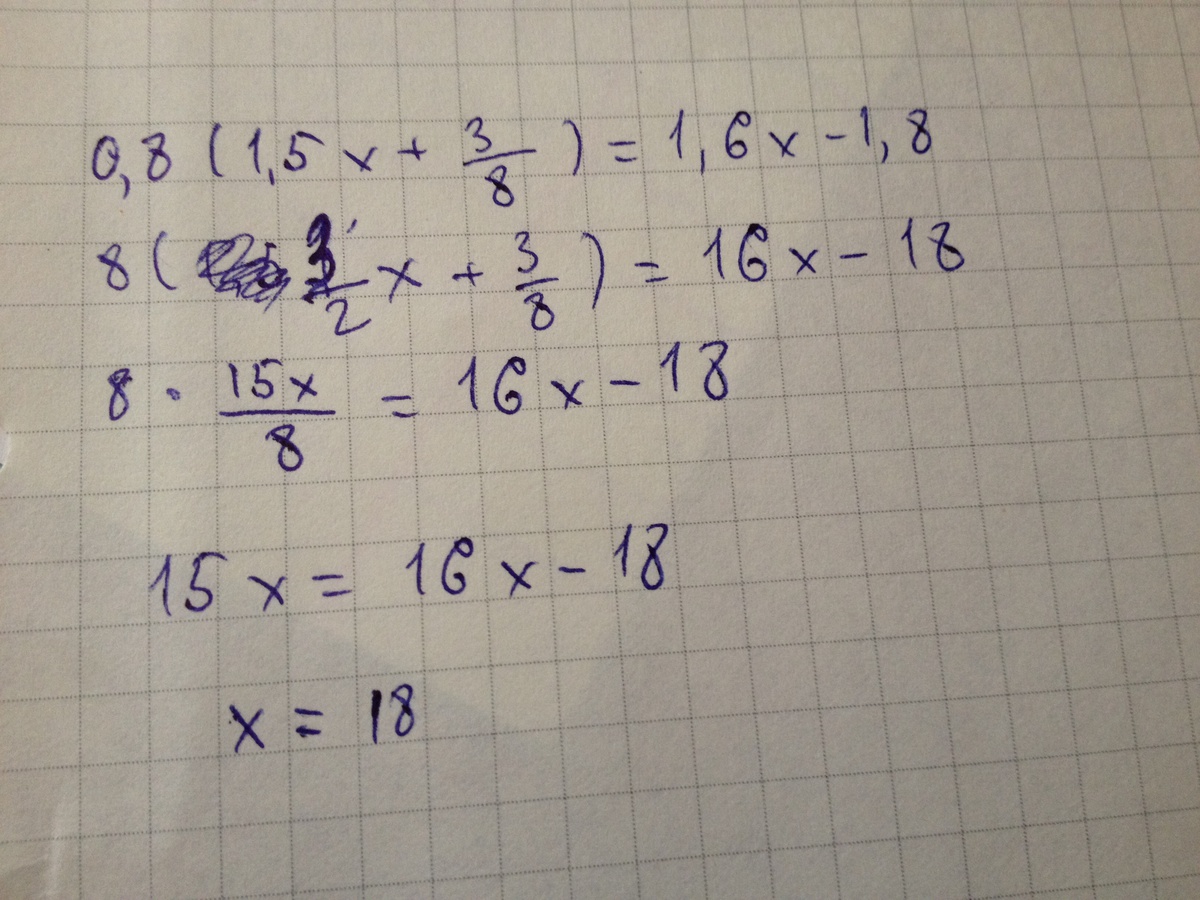 0,8 (1,5x + 3/8) = 1,6x - 1,8
8 ( 3/2 x + 3/8 ) = 16x - 18
8 · 15x/8 = 16x - 18
15x = 16x - 18
x = 18